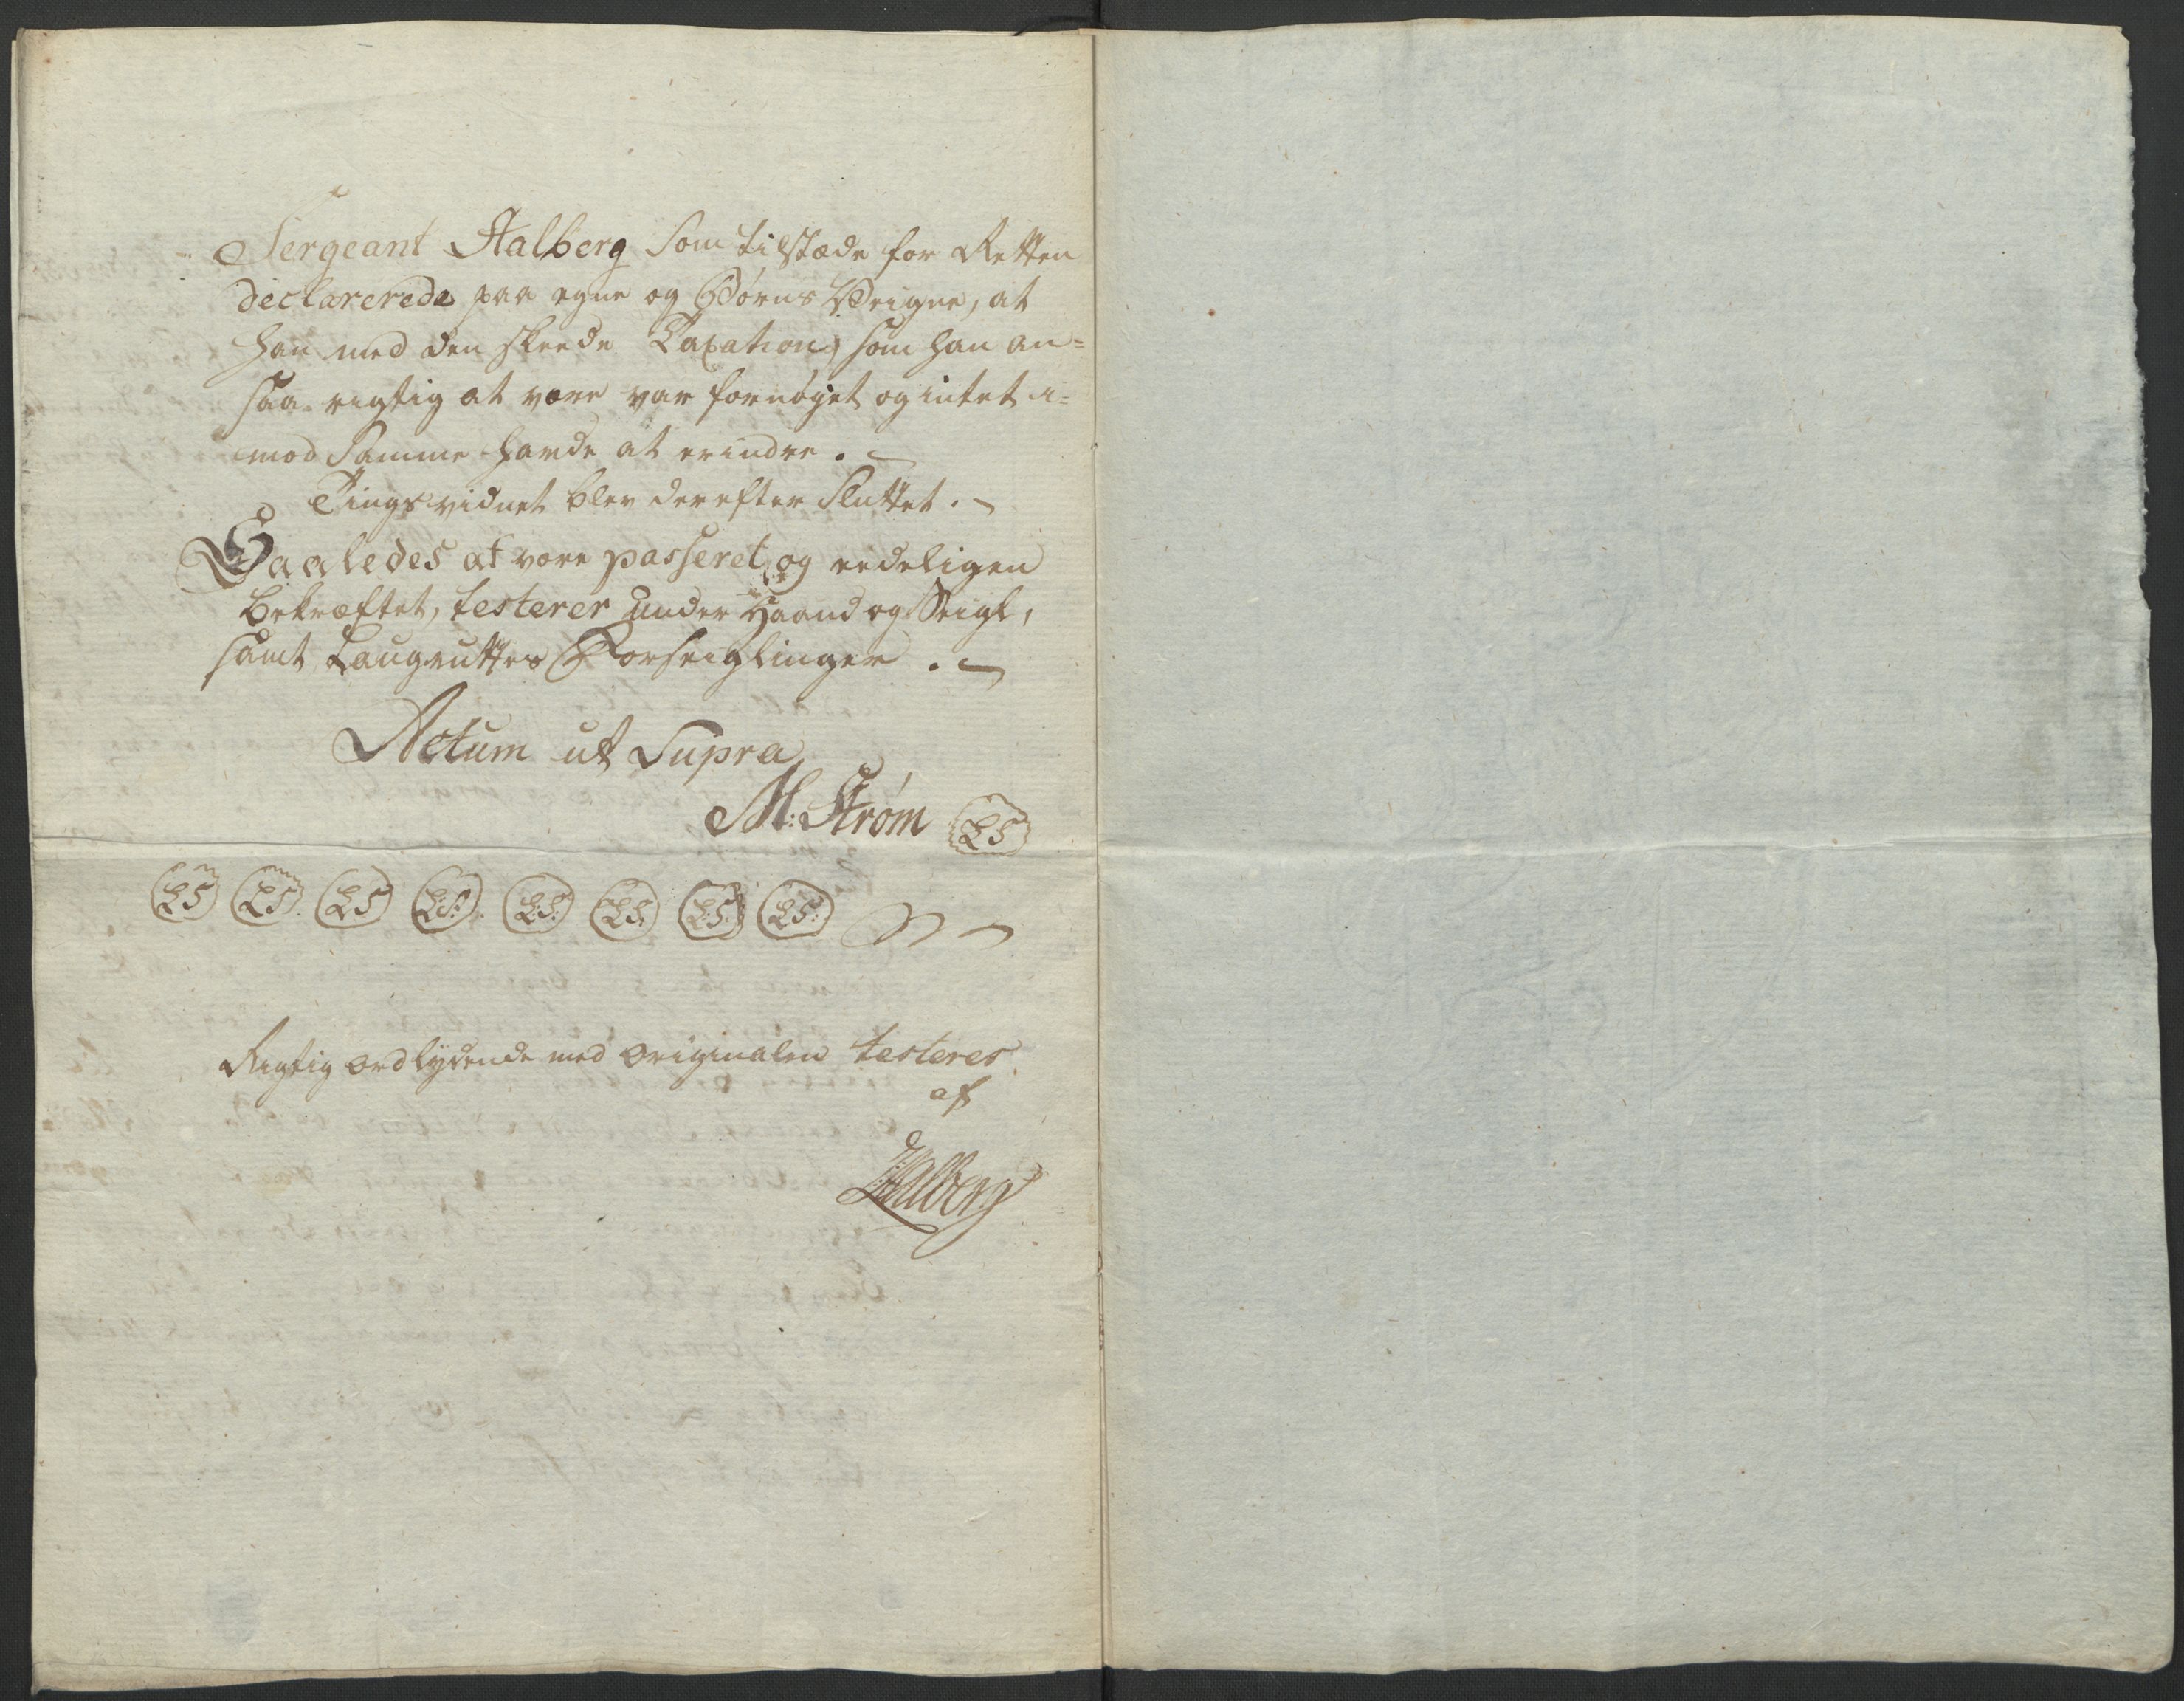 Sergeant Aalberg som tilstæde for Retten
declarerede paa egne og Børns Veigne, at
han med den skeede Taxation, som han an=
saae rigtig at være var fornøyet og intet i=
mod Samme havde at erindre.
Tingsvidnet blev derefter Sluttet.
Saaledes at være passeret og eedeligen
bekræftet, testerer under Haand og Seigl,
samt Laugrettes Forseiglinger.
Actum ut Supra
M: Strøm LS
LS LS LS L:S: L:S: LS. L:S: LS:
Rigtig ordlydende med Originalen testeres
af
Aalberg